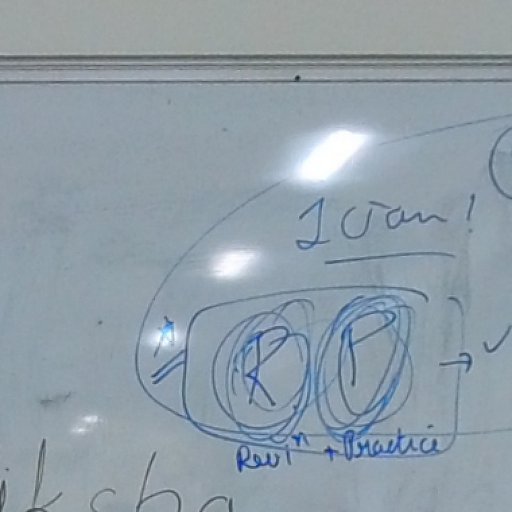 1 Jan!
R P
Revi^n + Practice
iksha